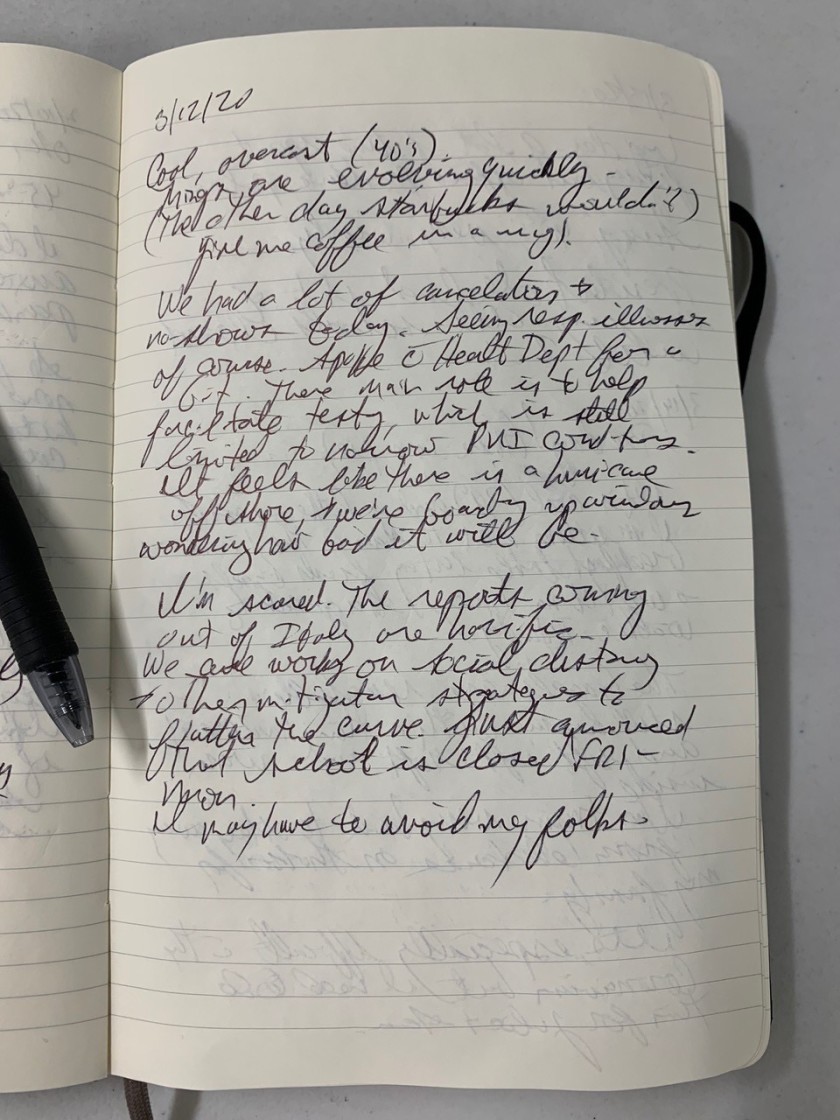 3/12/20
Cool, overcast (40's)
Things are evolving quickly.
(The other day Starbucks wouldn't)
give me coffee in a mug).
We had a lot of cancelations +
no-shows today. Seeing resp. illnesses
of course. Spoke c̄ Health Dept for a
bit. There main role is to help
facilitate testing, which is still
limited to unknown PUI conditions.
It feels like there is a hurricane
off shore, + we're boarding up windows
wondering how bad it will be.
I'm scared. The reports coming
out of Italy are horrific.
We are working on social distancing
+ other mitigation strategies to
flatten the curve. Just announced
that school is closed FRI –
Mon.
I may have to avoid my folks.